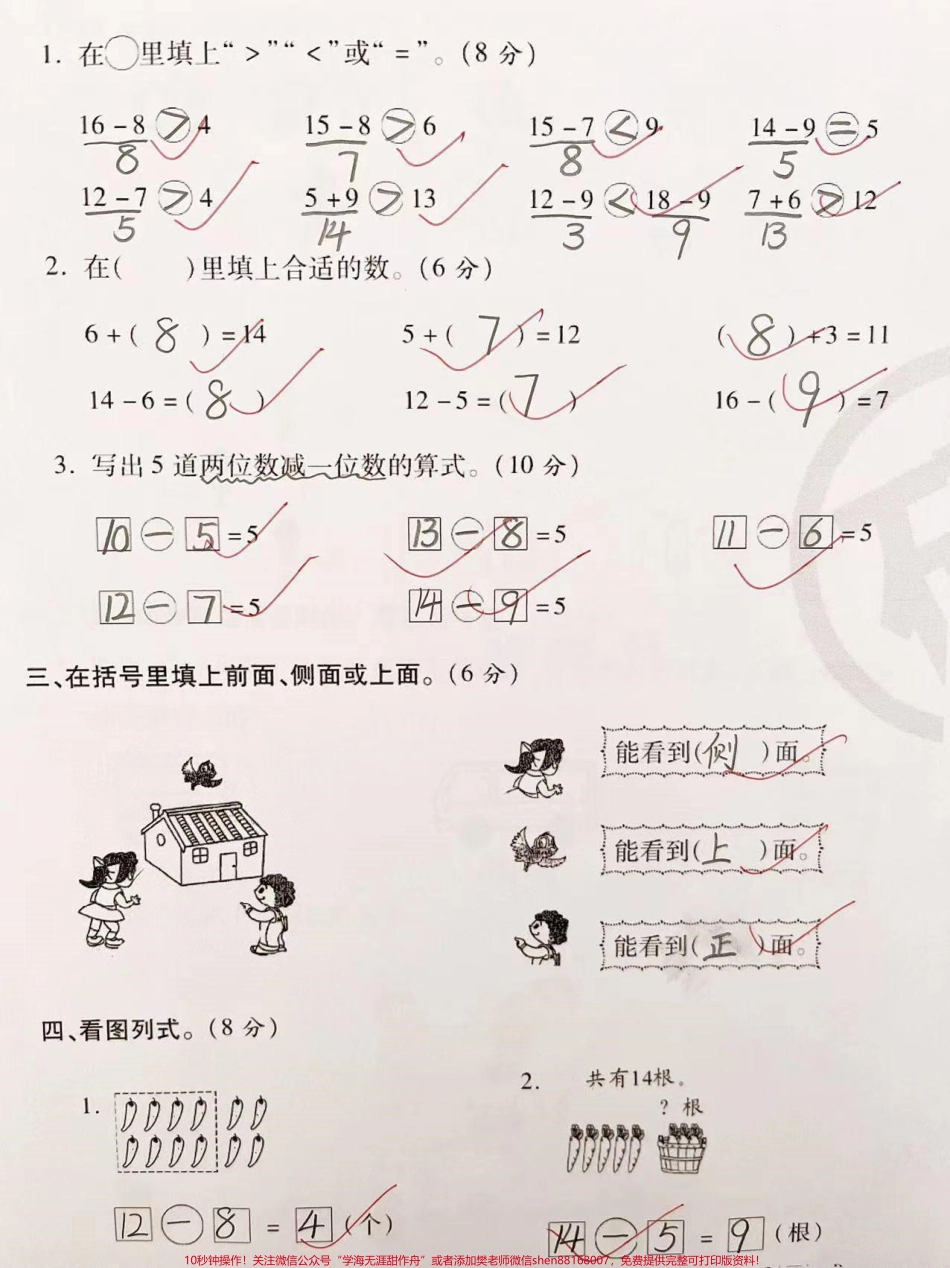 1. 在○里填上“>”“<”或“=”。(8 分)
16-8>4 15-8>6 15-7<9 14-9=5
8 7 8 5
12-7>4 5+9>13 12-9<18-9 7+6>12
5 14 3 9 13
2. 在( )里填上合适的数。(6 分)
6+(8)=14 5+(7)=12 (8)+3=11
14-6=(8) 12-5=(7) 16-(9)=7
3. 写出 5 道两位数减一位数的算式。(10 分)
10-5=5 13-8=5 11-6=5
12-7=5 14-9=5
三、在括号里填上前面、侧面或上面。(6 分)
能看到(侧)面。
能看到(上)面。
能看到(正)面。
四、看图列式。(8 分)
2. 共有14根。
1. ? 根
12-8=4(个) 14-5=9(根)
10秒钟操作！关注微信公众号“学海无涯甜作舟”或者添加樊老师微信shen88168007，免费提供完整可打印版资料！